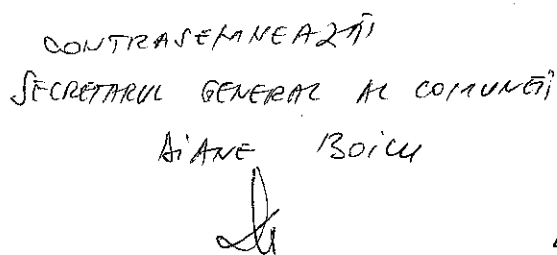 CONTRASEMNEAZĂ
SECRETARUL GENERAL AL COMUNEI
BOICU